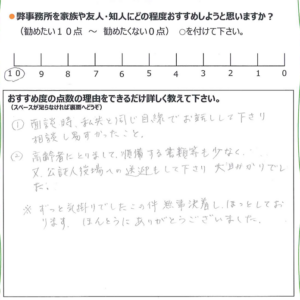 ●弊事務所を家族や友人・知人にどの程度おすすめしようと思いますか？
（勧めたい１０点 ～ 勧めたくない０点） ○を付けて下さい。
10 9 8 7 6 5 4 3 2 1 0
おすすめ度の点数の理由をできるだけ詳しく教えて下さい。
（スペースが足りなければ裏面へどうぞ）
① 面談時、私共と同じ目線でお話しして下さり
相談し易すかったこと。
② 高齢者にとりまして、準備する書類等も少なく、
又、公証人役場への送迎もして下さり 大助かりでし
た。
※ ずっと気掛りでしたこの件 無事決着し、ほっとしてお
ります。ほんとうにありがとうございました。